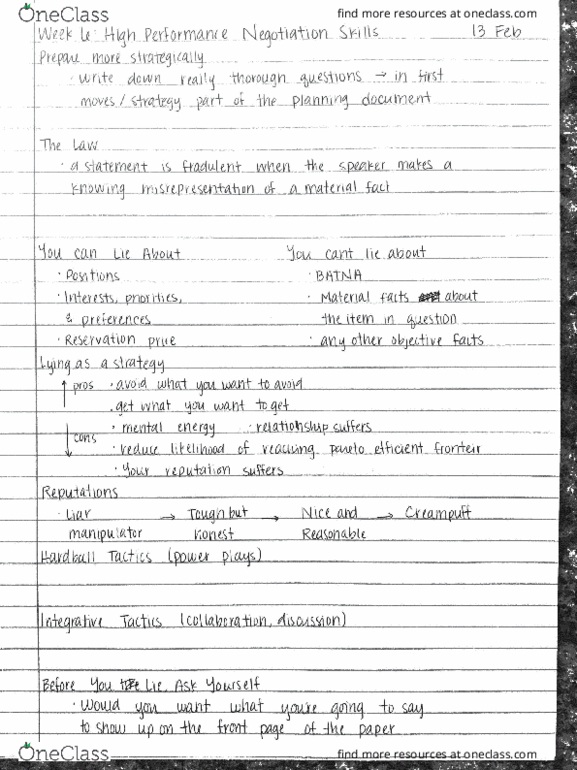 OneClass
find more resources at oneclass.com
Week 6: High Performance Negotiation Skills 13 Feb
Prepare more strategically
· write down really thorough questions → in first
moves/strategy part of the planning document
The Law
· a statement is fradulent when the speaker makes a
knowing misrepresentation of a material fact
You can Lie About You cant lie about
· Positions · BATNA
· Interests, priorities, · Material facts about
& preferences the item in question
· Reservation price · any other objective facts
Lying as a strategy
↑ pros · avoid what you want to avoid
· get what you want to get
↓ cons · mental energy · relationship suffers
· reduce likelihood of reaching pareto efficient fronteir
· Your reputation suffers
Reputations
· Liar → Tough but → Nice and → Creampuff
manipulator honest Reasonable
Hardball Tactics (power plays)
Integrative Tactics (collaboration, discussion)
Before You Lie, Ask Yourself
· Would you want what you're going to say
to show up on the front page of the paper
OneClass
find more resources at oneclass.com